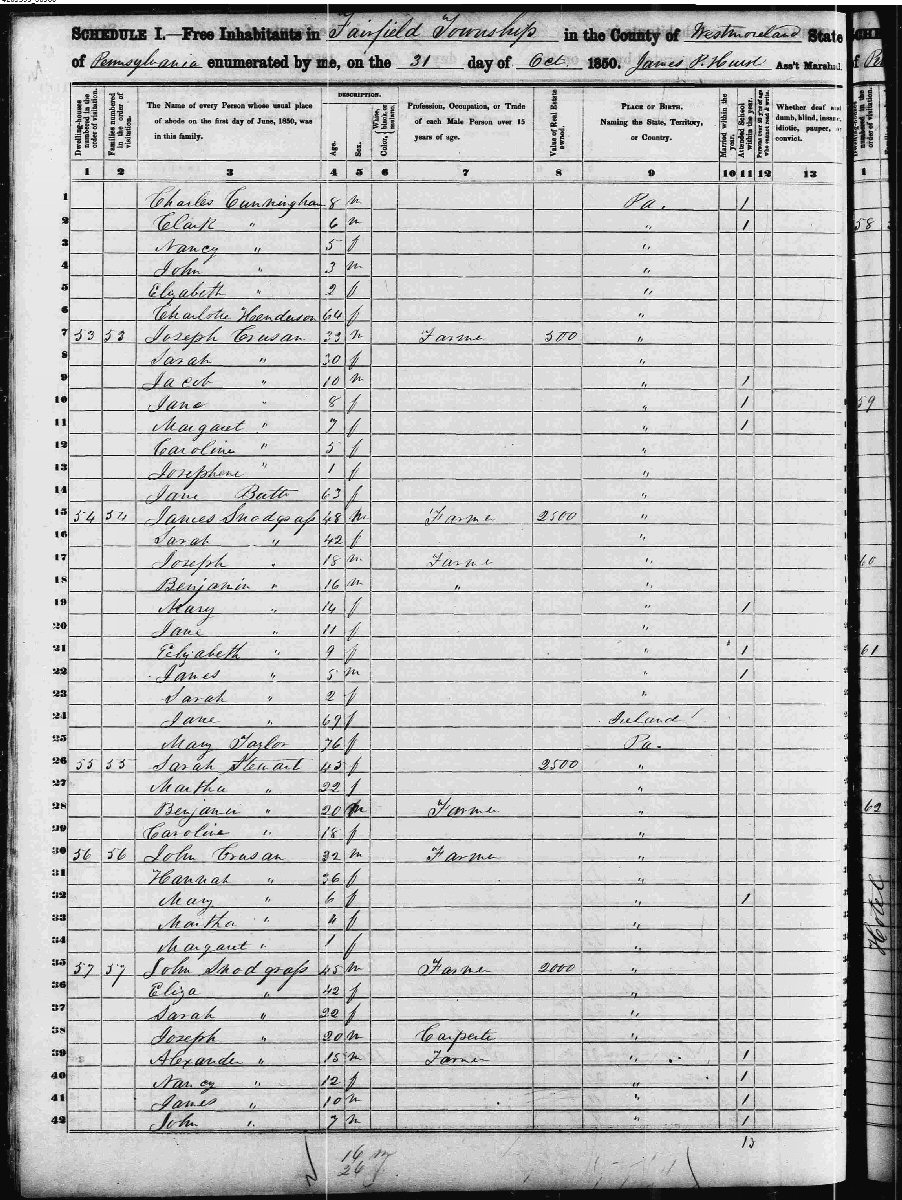 SCHEDULE I.—Free Inhabitants in Fairfield Township in the County of Westmoreland State
of Pennsylvania enumerated by me, on the 31 day of Oct. 1850. James P. Hurst Ass't Marshal.
Dwelling-houses numbered in the order of visitation.
Families numbered in the order of visitation.
The Name of every Person whose usual place of abode on the first day of June, 1850, was in this family.
DESCRIPTION.
Age.
Sex.
Color, White, black, or mulatto.
Profession, Occupation, or Trade of each Male Person over 15 years of age.
Value of Real Estate owned.
PLACE OF BIRTH. Naming the State, Territory, or Country.
Married within the year.
Attended School within the year.
Persons over 20 years of age who cannot read & write.
Whether deaf and dumb, blind, insane, idiotic, pauper, or convict.
1 2 3 4 5 6 7 8 9 10 11 12 13
1 Charles Cunningham 8 m Pa. 1
2 Clark " 6 m " 1
3 Nancy " 5 f "
4 John " 3 m "
5 Elizabeth " 2 f "
6 Charlotte Henderson 64 f "
7 53 53 Joseph Crusan 33 m Farmer 500 "
8 Sarah " 30 f "
9 Jacob " 10 m " 1
10 Jane " 8 f " 1
11 Margaret " 7 f " 1
12 Caroline " 5 f "
13 Josephene " 1 f "
14 Jane 63 f "
15 54 54 James Snodgrass 48 m Farmer 2500 "
16 Sarah " 42 f "
17 Joseph " 18 m Farmer "
18 Benjamin " 16 m " "
19 Mary " 14 f " 1
20 Jane " 11 f "
21 Elizabeth " 9 f " 1
22 James " 5 m " 1
23 Sarah " 2 f "
24 Jane " 69 f Ireland
25 Mary Taylor 76 f Pa.
26 55 55 Sarah Stewart 45 f 2500 "
27 Martha " 22 f "
28 Benjamin " 20 m Farmer "
29 Caroline " 18 f "
30 56 56 John Crusan 32 m Farmer "
31 Hannah " 36 f "
32 Mary " 6 f " 1
33 Martha " 4 f "
34 Margaret " 1 f "
35 57 57 John Snodgrass 45 m Farmer 2000 "
36 Eliza " 42 f "
37 Sarah " 22 f "
38 Joseph " 20 m Carpenter "
39 Alexander " 15 m Farmer " 1
40 Nancy " 12 f " 1
41 James " 10 m " 1
42 John " 7 m " 1
13
16 m
26 f
58
59
60
61
62
Hotel